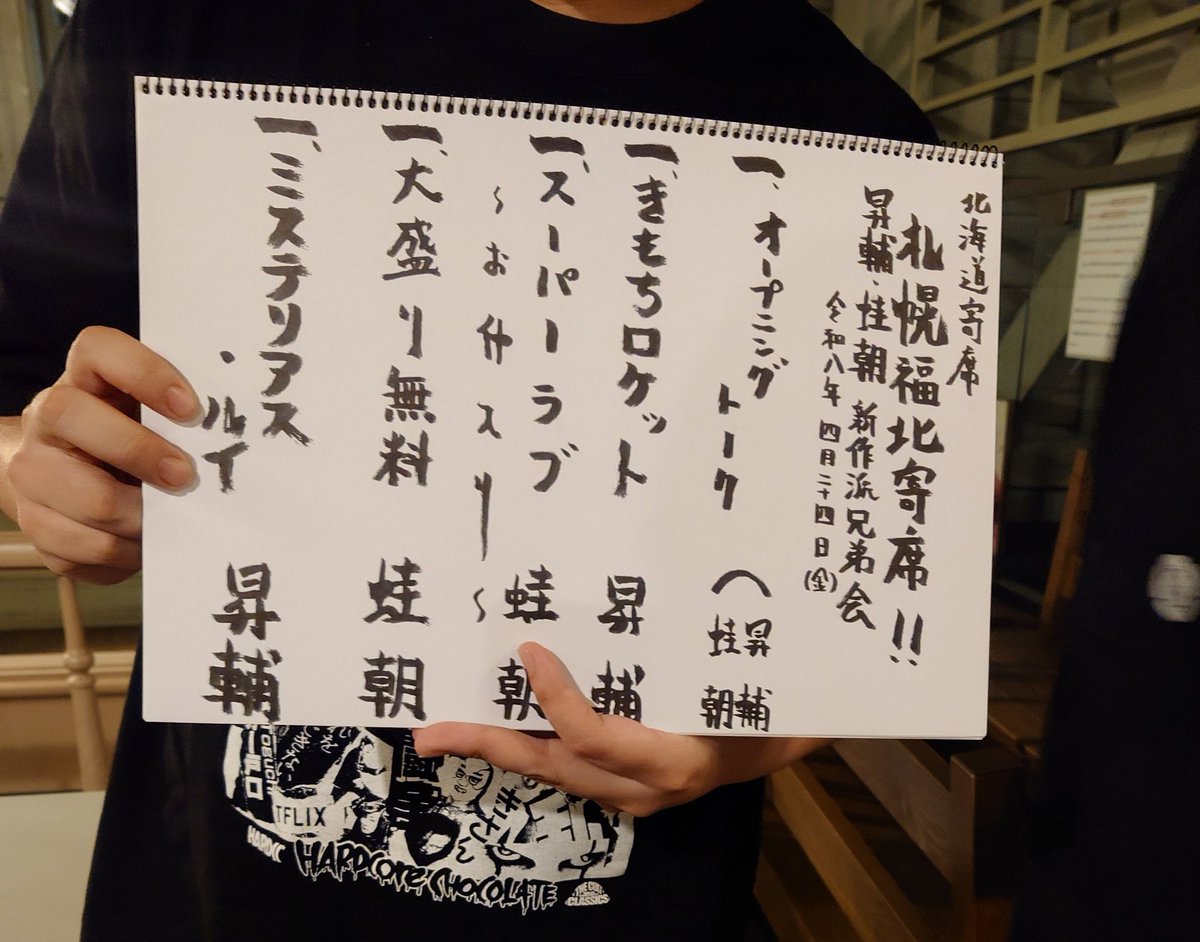 北海道寄席
札幌福北寄席!!
昇輔・蛙朝 新作派兄弟会
令和八年 四月二十四日(金)
一、オープニング
トーク
昇輔
蛙朝
一、きもちロケット 昇輔
一、スーパーラブ 蛙朝
一、大盛り無料 蛙朝
一、ミステリアス
・ルイ 昇輔
TFLIX
HARDCORE CHOCOLATE
THE CULT
CLASSICS